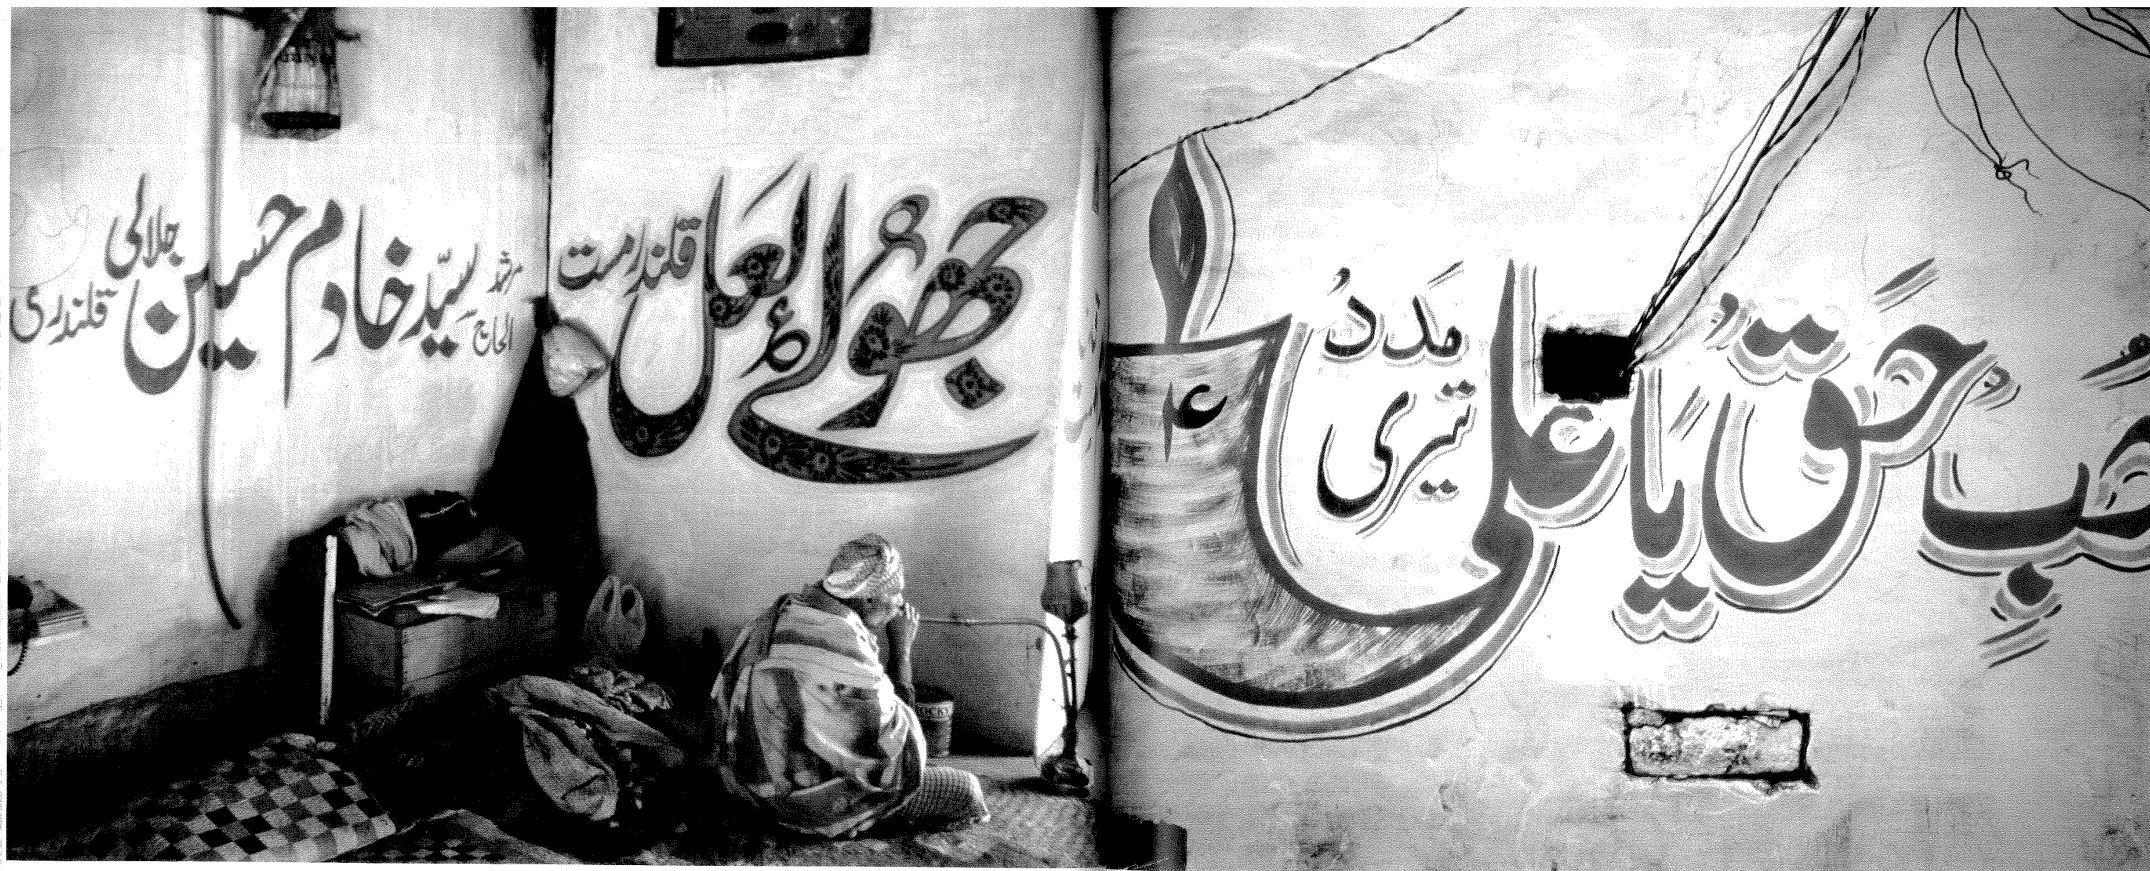 حَقّ یا علی
مَدَدُ
تیری
جھولے لعل
قلندر مست
مرشد
الحاج
سیّد خادم حسین
جلالی
قلندری